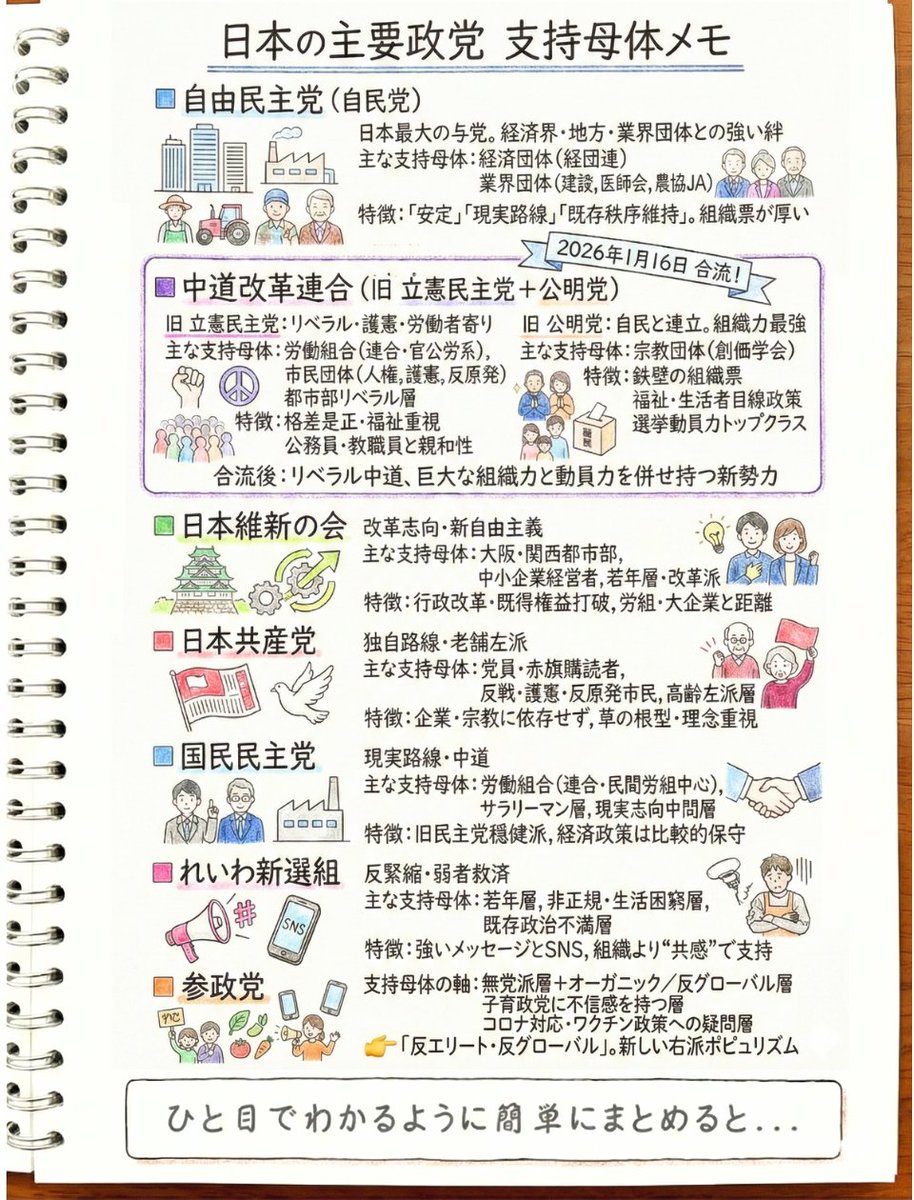 日本の主要政党 支持母体メモ
自由民主党(自民党)
日本最大の与党。経済界・地方・業界団体との強い絆
主な支持母体:経済団体(経団連)
業界団体(建設,医師会,農協JA)
特徴:「安定」「現実路線」「既存秩序維持」。組織票が厚い
2026年1月16日 合流!
中道改革連合(旧 立憲民主党+公明党)
旧 立憲民主党:リベラル・護憲・労働者寄り
主な支持母体:労働組合(連合・官公労系),
市民団体(人権,護憲,反原発)
都市部リベラル層
特徴:格差是正・福祉重視
公務員・教職員と親和性
旧 公明党:自民と連立。組織力最強
主な支持母体:宗教団体(創価学会)
特徴:鉄壁の組織票
福祉・生活者目線政策
選挙動員力トップクラス
合流後:リベラル中道、巨大な組織力と動員力を併せ持つ新勢力
日本維新の会
改革志向・新自由主義
主な支持母体:大阪・関西都市部,
中小企業経営者,若年層・改革派
特徴:行政改革・既得権益打破,労組・大企業と距離
日本共産党
独自路線・老舗左派
主な支持母体:党員・赤旗購読者,
反戦・護憲・反原発市民,高齢左派層
特徴:企業・宗教に依存せず,草の根型・理念重視
国民民主党
現実路線・中道
主な支持母体:労働組合(連合・民間労組中心),
サラリーマン層,現実志向中間層
特徴:旧民主党穏健派,経済政策は比較的保守
れいわ新選組
#
SNS
反緊縮・弱者救済
主な支持母体:若年層,非正規・生活困窮層,
既存政治不満層
特徴:強いメッセージとSNS,組織より“共感”で支持
参政党
支持母体の軸:無党派層+オーガニック/反グローバル層
子育政党に不信感を持つ層
コロナ対応・ワクチン政策への疑問層
👉「反エリート・反グローバル」。新しい右派ポピュリズム
ひと目でわかるように簡単にまとめると...